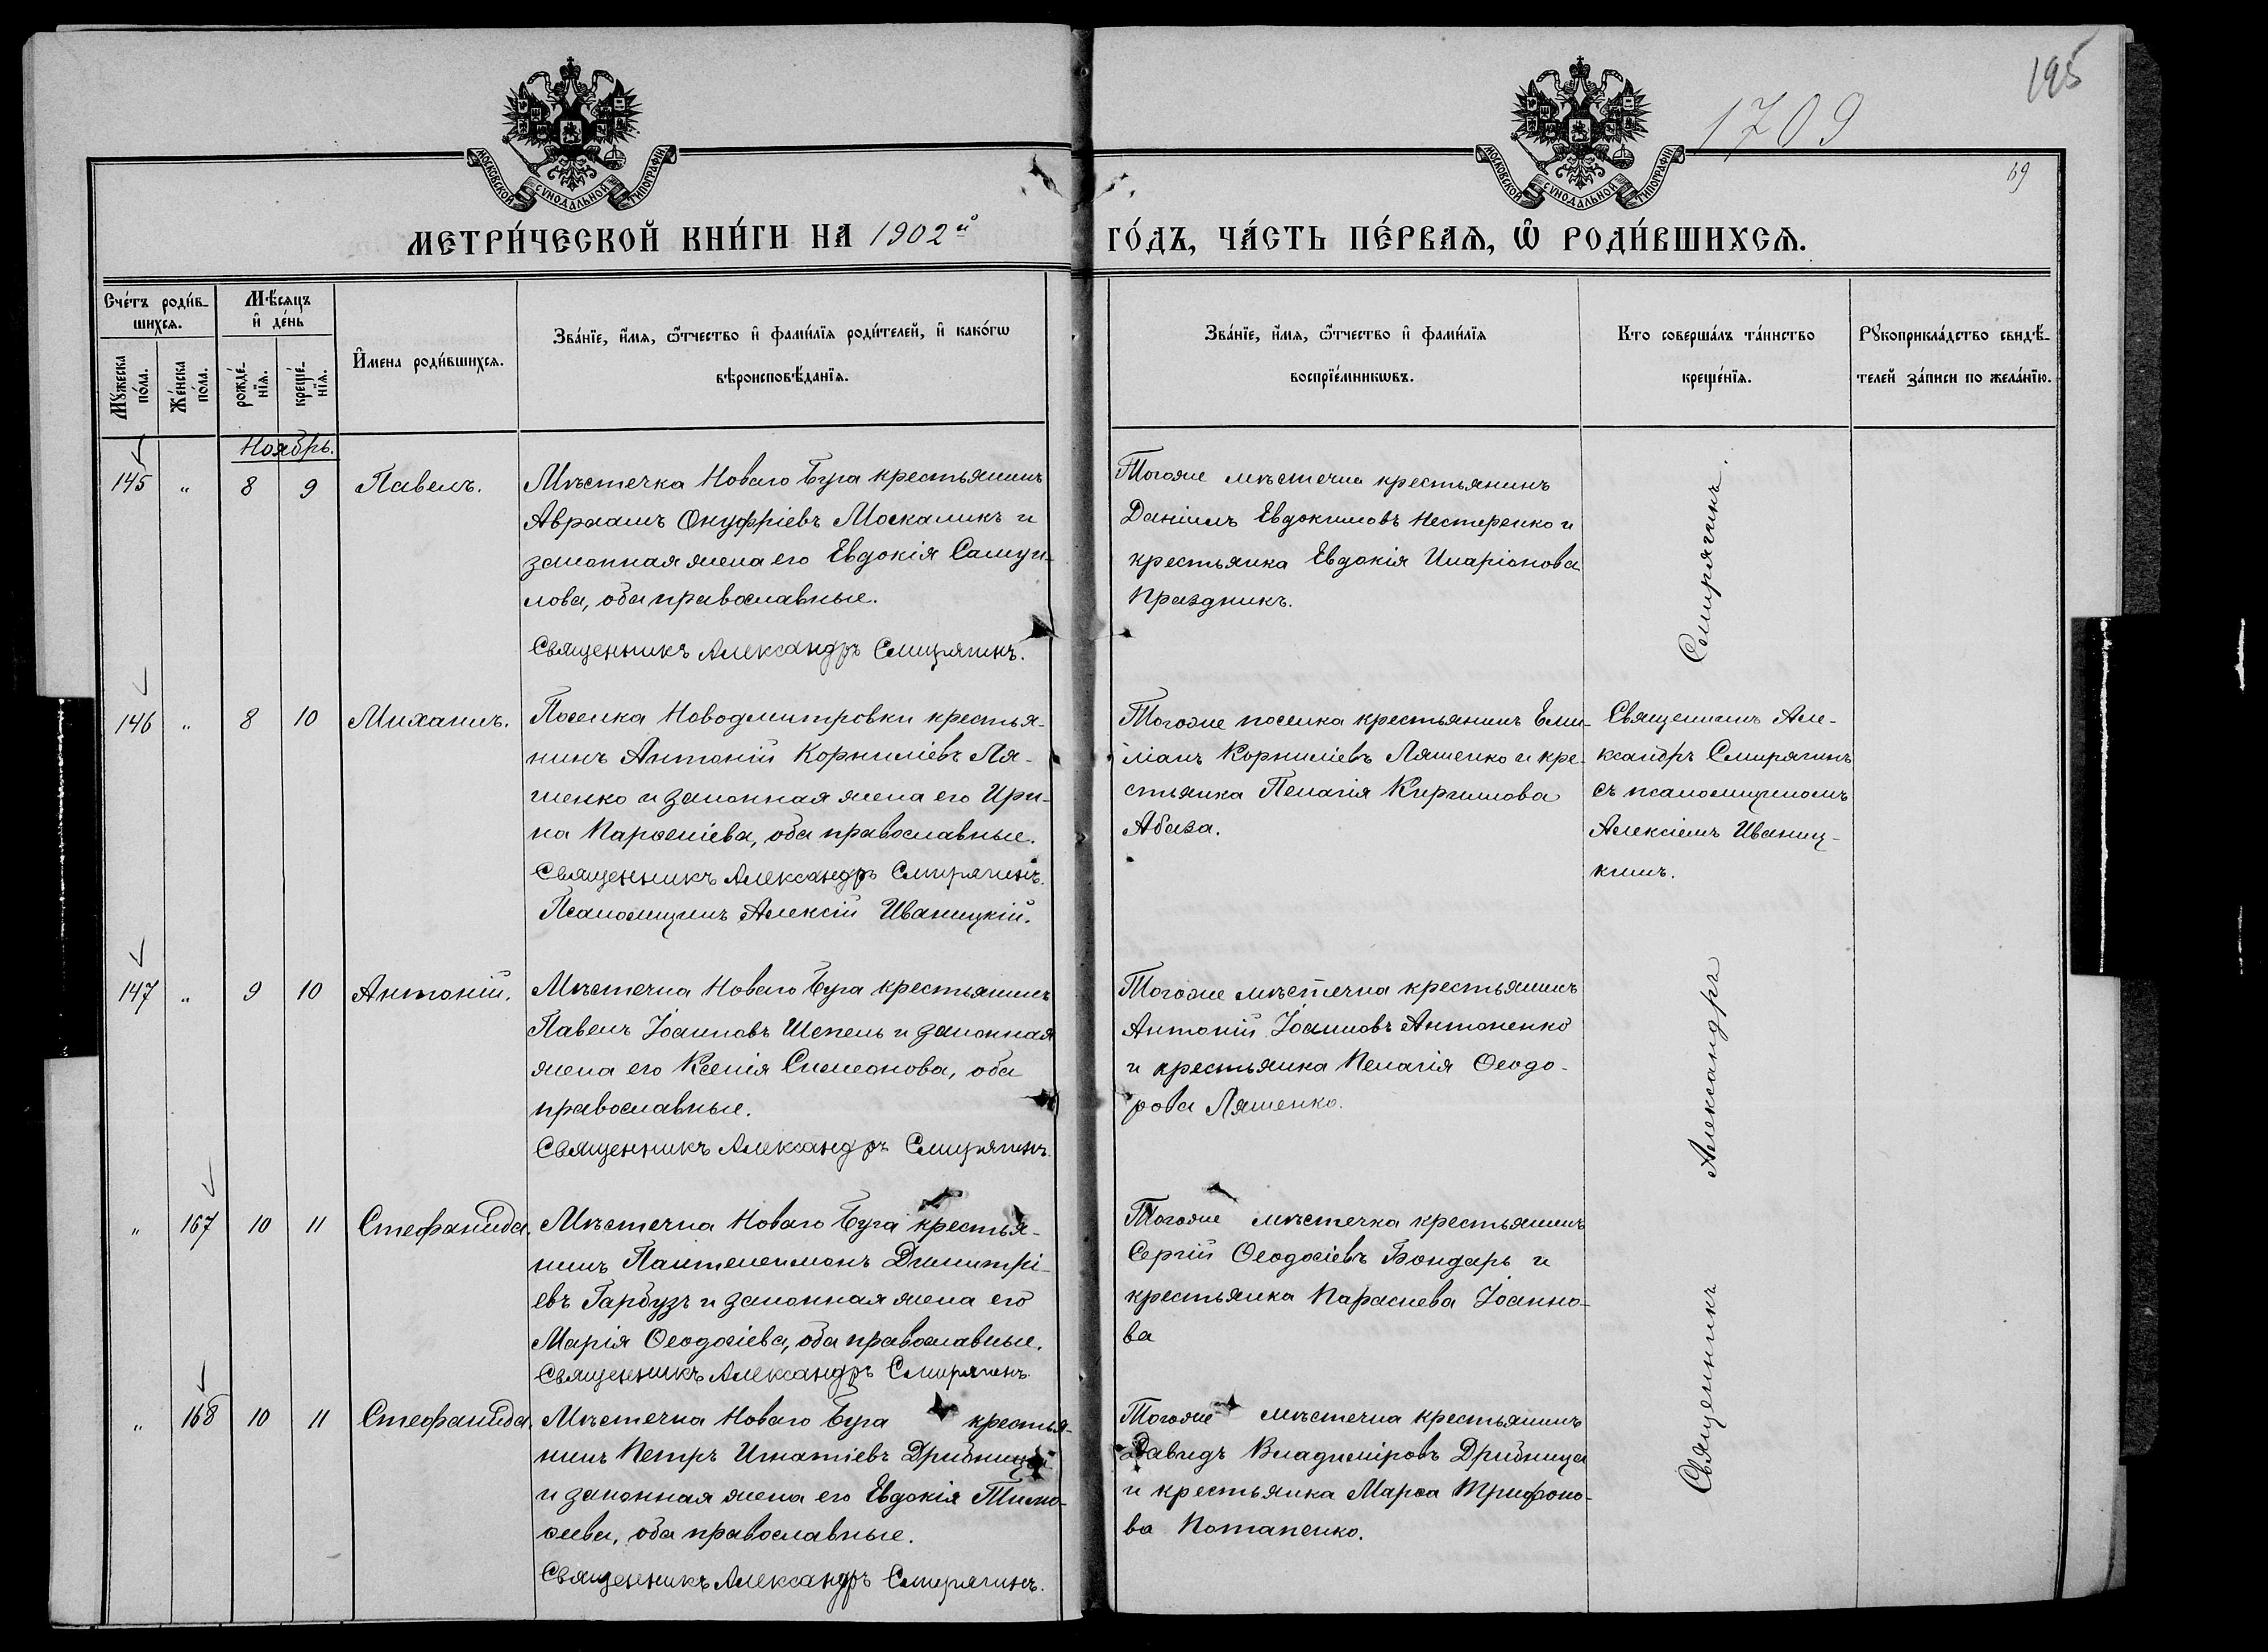 195
1709
69
МОСКОВСКОЙ СѴНОДАЛЬНОЙ ТИПОГРАФІИ
МОСКОВСКОЙ СѴНОДАЛЬНОЙ ТИПОГРАФІИ
МЕТРИ́ЧЕСКОЙ КНИ́ГИ НА 1902й
ГО́ДЪ, ЧА́СТЬ ПЕ́РВАѦ, Ѡ҆ РОДИ́ВШИХСѦ.
Сче́тъ роди́в-
шихсѧ.
Мѣ́сѧцъ
и҆ де́нь
Мꙋ́жеска
по́ла.
Же́нска
по́ла.
рожде́-
нїѧ.
креще́-
нїѧ.
И҆мена роди́вшихсѧ.
Зва́нїе, и҆́мѧ, ѻ҆́тчество и҆ фами́лїѧ роди́телей, и҆ како́гѡ
вѣроисповѣ́данїѧ.
Зва́нїе, и҆́мѧ, ѻ҆́тчество и҆ фами́лїѧ
воспрїе́мникѡвъ.
Кто соверша́лъ та́инство
креще́нїѧ.
Рꙋкоприкла́дство свидѣ́-
телей за́писи по жела́нїю.
Ноябрь.
145 " 8 9 Павелъ.
Мѣстечка Новаго Буга крестьянинъ
Авраамъ Онуфріевъ Москаликъ и
законная жена его Евдокія Самуи-
лова, оба православные.
Священникъ Александръ Смирягинъ.
Тогоже мѣстечка крестьянинъ
Даніилъ Евдокимовъ Нестеренко и
крестьянка Евдокія Иларіонова
Праздникъ.
146 " 8 10 Михаилъ.
Поселка Новодмитровки крестья-
нинъ Антоній Корниліевъ Ля-
шенко и законная жена его Ири-
на Парѳеніева, оба православные.
Священникъ Александръ Смирягинъ.
Псаломщикъ Алексій Иваницкій.
Тогоже поселка крестьянинъ Еми-
ліанъ Корниліевъ Ляшенко и кре-
стьянка Пелагія Кириллова
Абаза.
Священникъ Але-
ксандръ Смирягинъ
съ псаломщикомъ
Алексіемъ Иваниц-
кимъ.
147 " 9 10 Антоній.
Мѣстечка Новаго Буга крестьянинъ
Павелъ Іоанновъ Шепель и законная
жена его Ксенія Симеонова, оба
православные.
Священникъ Александръ Смирягинъ.
Тогоже мѣстечка крестьянинъ
Антоній Іоанновъ Антоненко
и крестьянка Пелагія Ѳеодо-
рова Ляшенко.
" 167 10 11 Стефанида.
Мѣстечка Новаго Буга крестья-
нинъ Пантелеимонъ Димитрі-
евъ Гарбузъ и законная жена его
Марія Ѳеодосіева, оба православные.
Священникъ Александръ Смирягинъ.
Тогоже мѣстечка крестьянинъ
Сергій Ѳеодосіевъ Бондарь и
крестьянка Параскева Іоанно-
ва
" 168 10 11 Стефанида.
Мѣстечка Новаго Буга крестья-
нинъ Петръ Игнатіевъ Дрибница
и законная жена его Евдокія Тимо-
ѳеева, оба православные.
Священникъ Александръ Смирягинъ.
Тогоже мѣстечка крестьянинъ
Давидъ Владиміровъ Дрибница
и крестьянка Марѳа Трифоно-
ва Потапенко.
Священникъ Александръ Смирягинъ.